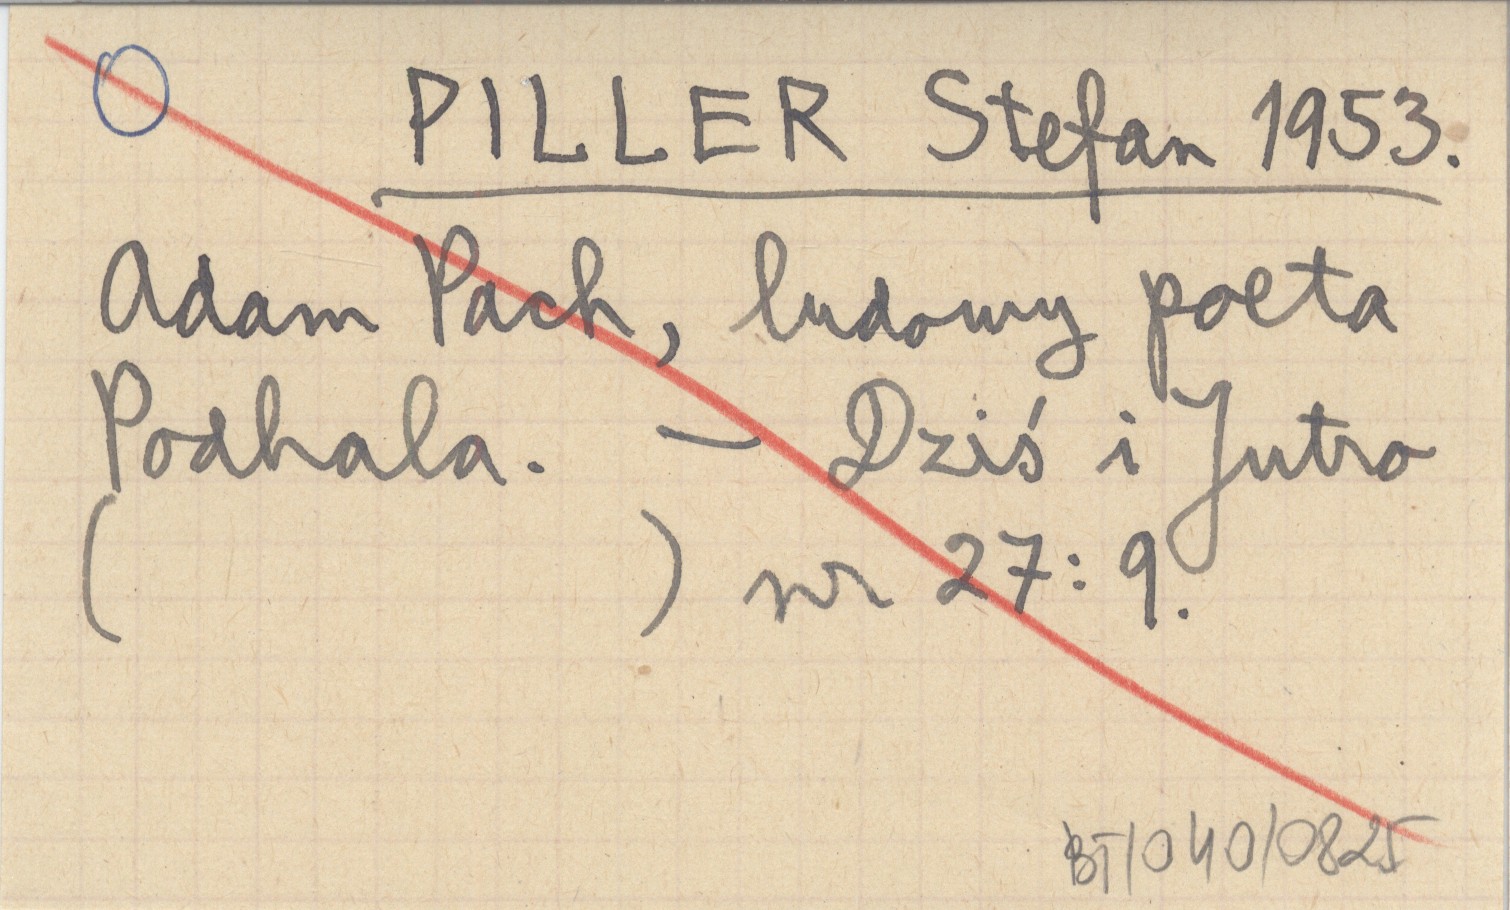 PILLER Stefan 1953.
Adam Pach, ludowy poeta
Podhala. — Dziś i Jutro
( ) nr 27: 9.
BT/040/0825